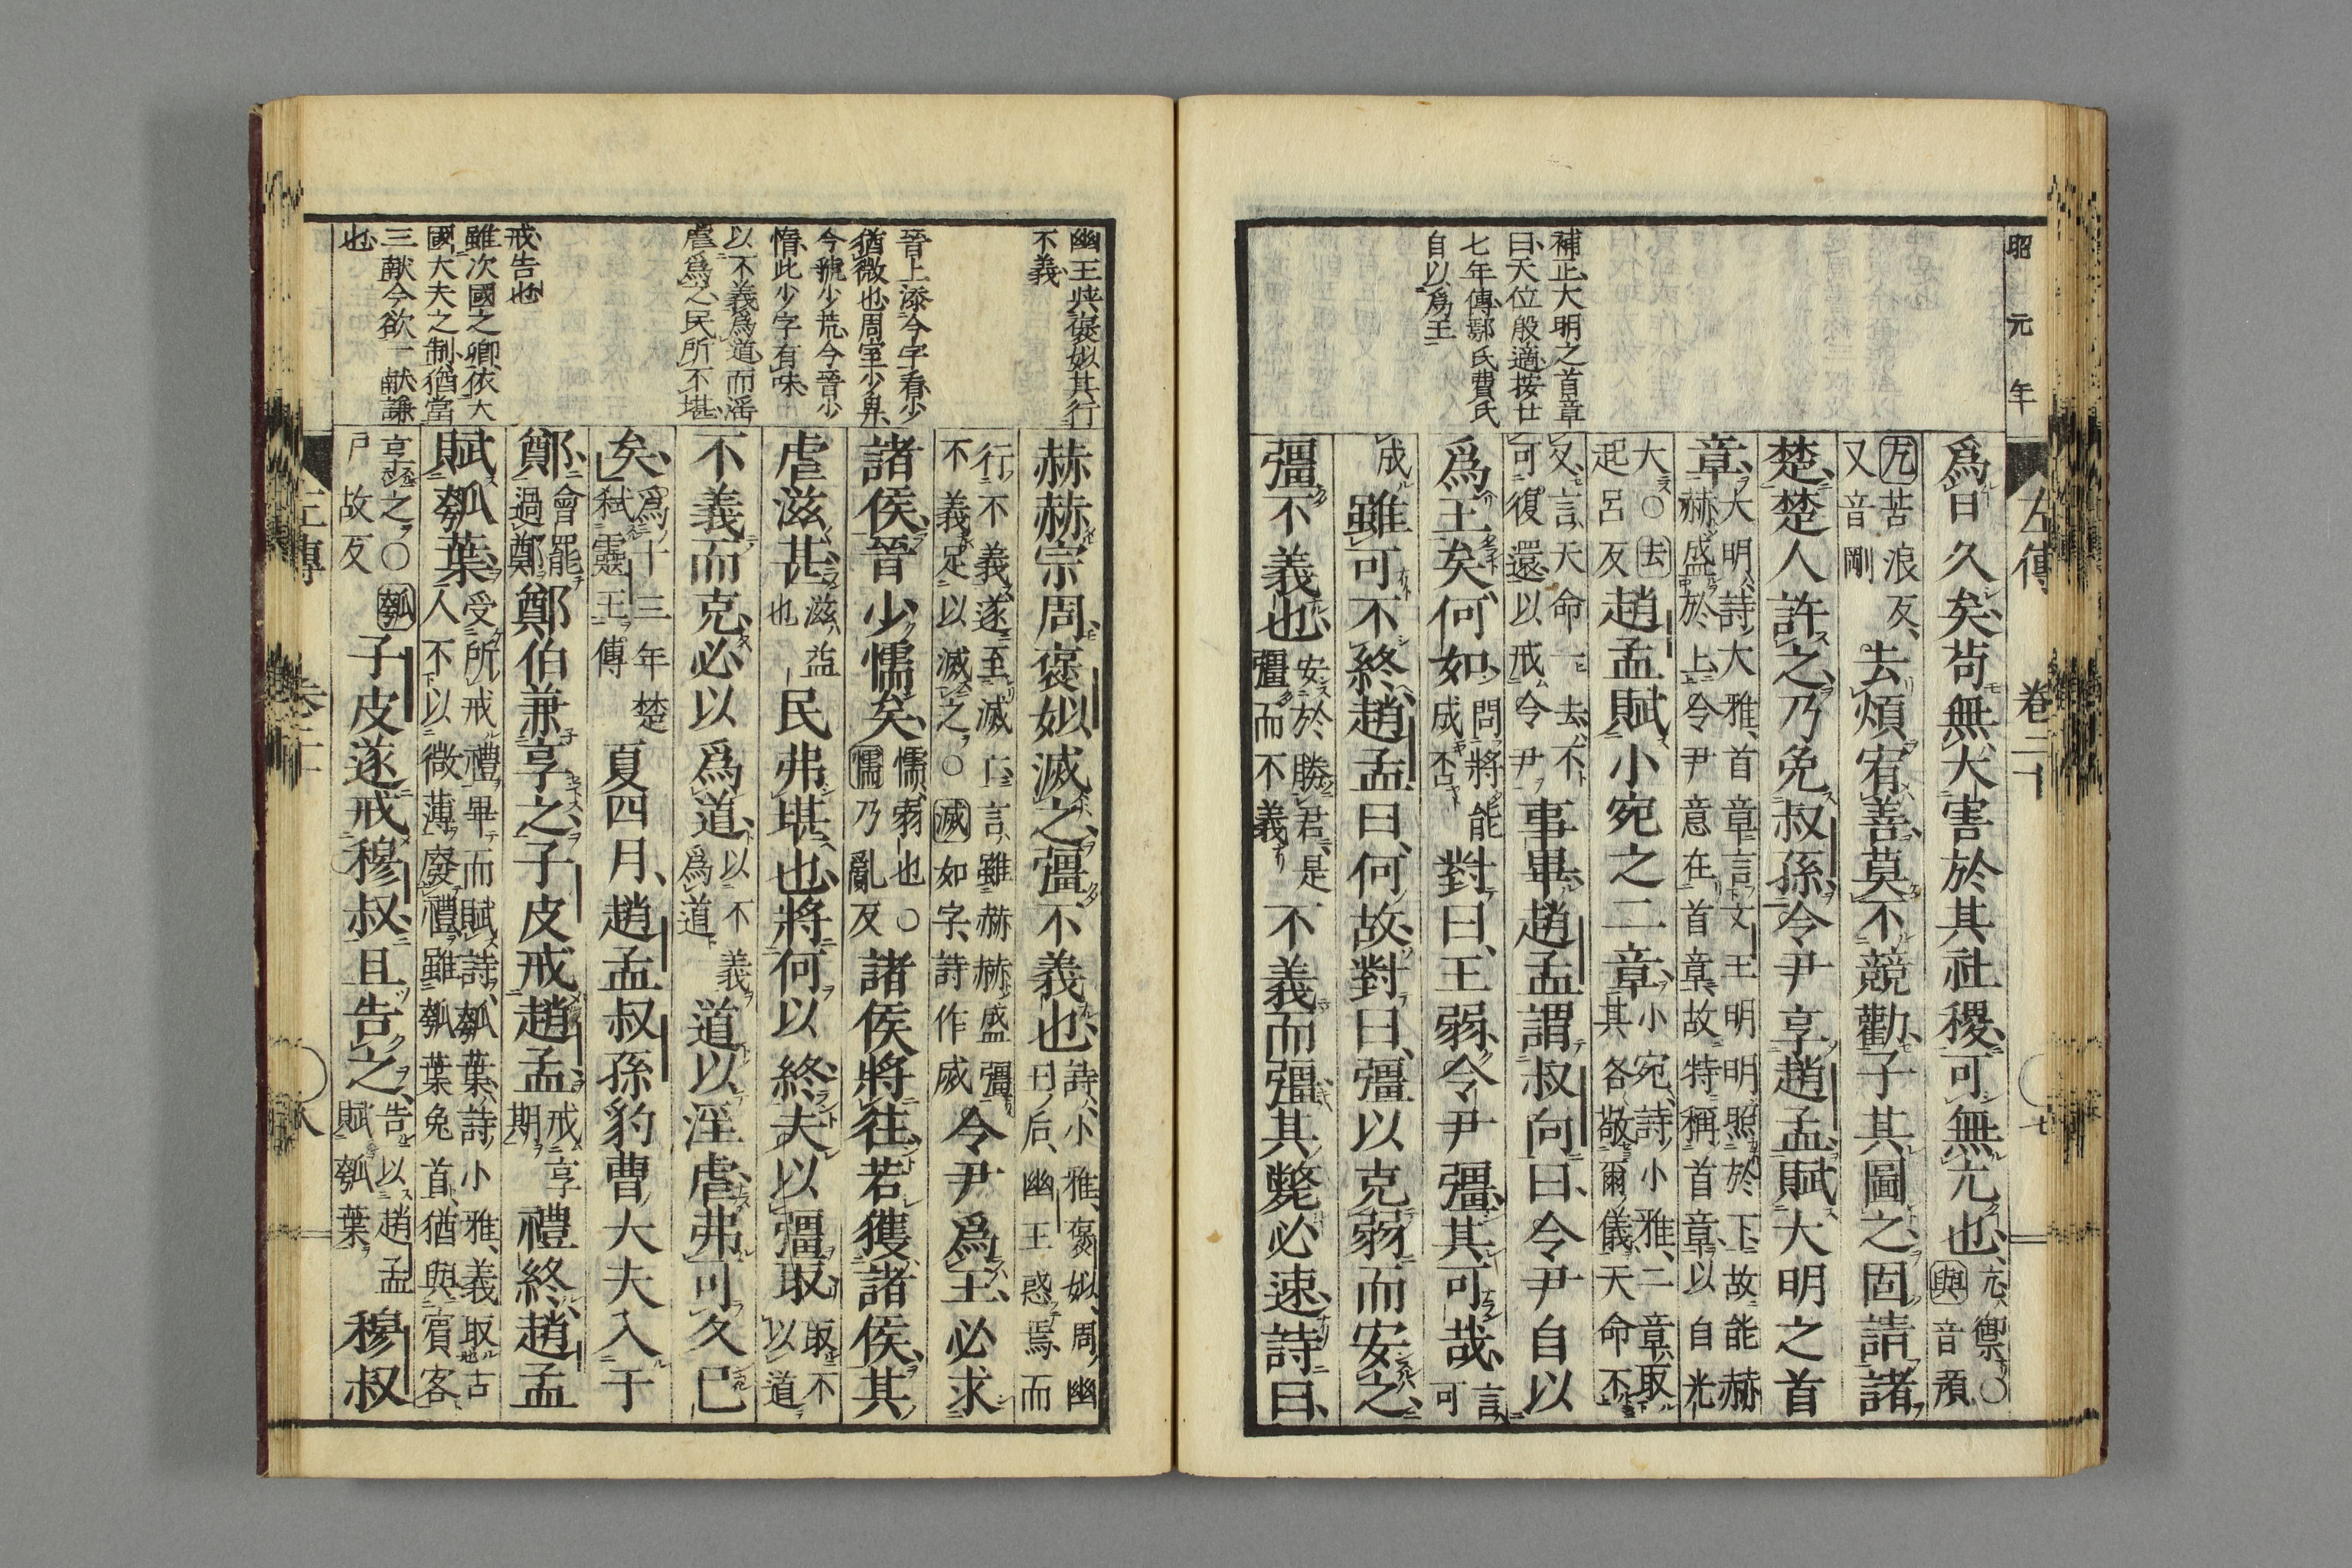 昭元年
左傳
卷二十
七
補正大明之首章
曰天位殷適按廿
七年傳鄢氏費氏
自以爲王
爲日久矣苟無大害於其社稷可無亢也亢禦○與音預
亢苦浪反又音剛去煩宥善莫不競勸子其圖之固請諸
楚楚人許之乃免叔孫令尹享趙孟賦大明之首
章大明詩大雅首章言文王明明照於下故能赫赫盛於上令尹意在首章故特稱首章以自光
大○去起呂反趙孟賦小宛之二章小宛詩小雅二章取其各敬爾儀天命不
又言天命一去不可復還以戒令尹事畢趙孟謂叔向曰令尹自以
爲王矣何如問將能成否對曰王弱令尹彊其可哉言可
成雖可不終趙孟曰何故對曰彊以克弱而安之
彊不義也安於勝君是彊而不義不義而彊其斃必速詩曰
幽王娶褒姒其行
不義
晉上添今字看少
猶微也周室少卑
今虢少荒今晉少
惰此少字有味
以不義爲道而淫
虐爲之民所不堪
戒告也
雖次國之卿依大
國大夫之制猶當
三献今欲一献謙
也
赫赫宗周褒姒滅之彊不義也詩小雅褒姒周幽王后幽王惑焉而
行不義遂至滅亡言雖赫赫盛彊不義足以滅之○滅如字詩作威令尹爲王必求
諸侯晉少懦矣懦弱也○懦乃亂反諸侯將往若獲諸侯其
虐滋甚滋益也民弗堪也將何以終夫以彊取取不以道
不義而克必以爲道以不義爲道道以淫虐弗可久已
矣爲十三年楚弒靈王傳夏四月趙孟叔孫豹曹大夫入于
鄭會罷過鄭鄭伯兼享之子皮戒趙孟戒享期禮終趙孟
賦瓠葉受所戒禮畢而賦詩瓠葉詩小雅義取古人不以微薄廢禮雖瓠葉兔首猶與賓客
享之○瓠戶故反子皮遂戒穆叔且告之告以趙孟賦瓠葉穆叔